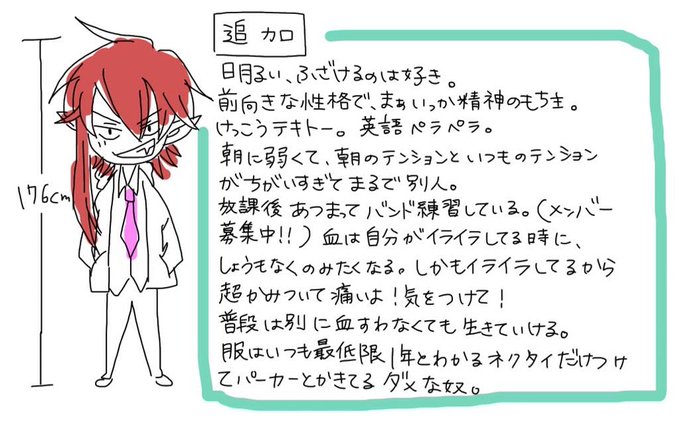 追加
明るい、ふざけるのは好き。
前向きな性格で、まぁいっか精神のもち主。
けっこうテキトー。英語ペラペラ。
朝に弱くて、朝のテンションといつものテンション
がちがいすぎてまるで別人。
放課後あつまってバンド練習している。(メンバー
募集中!!)血は自分がイライラしてる時に、
しょうもなくのみたくなる。しかもイライラしてるから
超かみついて痛いよ!気をつけて!
普段は別に血すわなくても生きていける。
服はいつも最低限1年とわかるネクタイだけつけ
てパーカーとかきてるダメな奴。
176cm